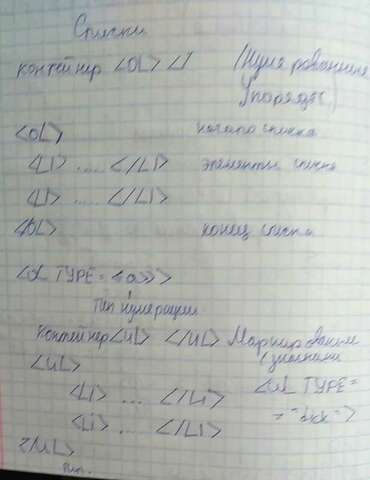 Списки
контейнер <OL> </ (Нумерованные
Упорядоч.)
<OL> начало списка
<LI> ..... </LI> элементы списка
<LI> ..... </LI>
конец списка
<OL TYPE = «a»>
Тип нумерации
Контейнер <UL> </UL> Маркированные
<UL>
<LI> ... </LI> <UL TYPE=
<Li> ... </LI>
</UL>